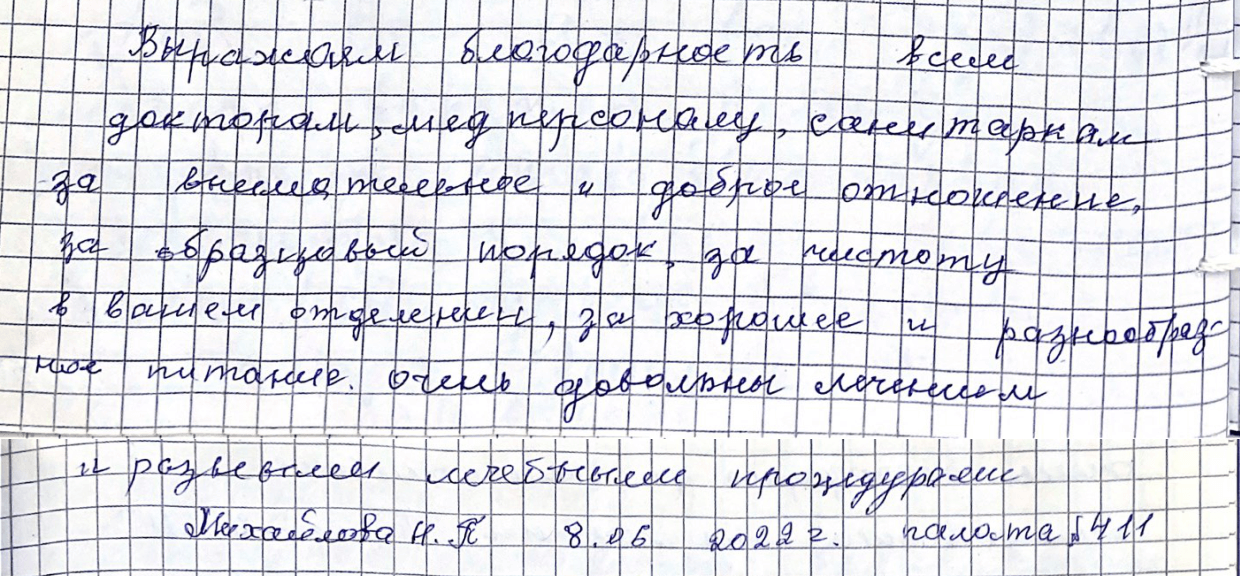 Выражаем благодарность всем
докторам, медперсоналу, санитаркам
за внимательное и доброе отношение,
за образцовый порядок, за чистоту
в вашем отделении, за хорошее и разнообраз-
ное питание. очень довольны лечением
и разными лечебными процедурами
Михайлова Н. П 8.06 2022 г. палата 411